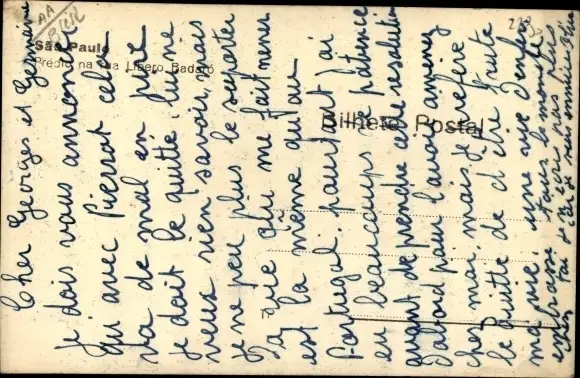 AA
São Paulo
Prédio na rua Líbero Badaró
Bilhete Postal
Cher Georges et Germaine
je dois vous annoncer
qu avec Pierrot cela
va de mal en pire
je doit le quitté lui ne
veux rien savoir, mais
je ne peu plus le suporter
la vie qu'il me fait mener
est la même qu'au
Portugal. pourtant j'ai
eu beaucoups de patience
avant de prendre cette resolution
D'abord pour l'avoir amener
chez moi, mais je prefere
le quitté de d'être
ma vie, une vie d'enfer
embrasse tous le monde